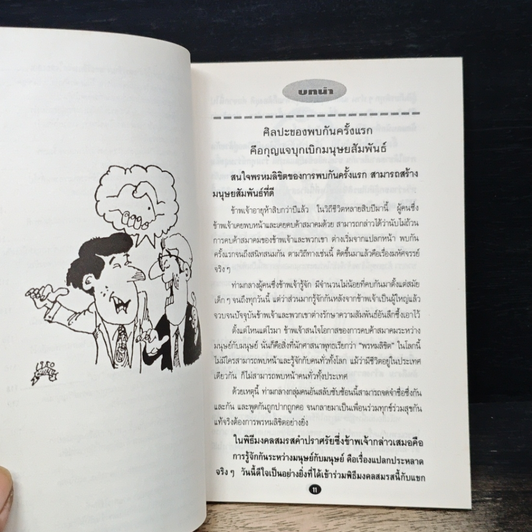 บทนำ
ศิลปะของพบกันครั้งแรก
คือกุญแจบุกเบิกมนุษยสัมพันธ์
สนใจพรหมลิขิตของการพบกันครั้งแรก สามารถสร้าง
มนุษยสัมพันธ์ที่ดี
ข้าพเจ้าอายุห้าสิบกว่าปีแล้ว ในวิถีชีวิตหลายสิบปีมานี้ ผู้คนซึ่ง
ข้าพเจ้าเคยพบหน้าและเคยคบค้าสมาคมด้วย สามารถกล่าวได้ว่านับไม่ถ้วน
การคบค้าสมาคมของข้าพเจ้าและพวกเขา ต่างเริ่มจากแปลกหน้า พบกัน
ครั้งแรกจนถึงสนิทสนมกัน ตามวิถีทางเช่นนี้ คิดขึ้นมาแล้วคือเรื่องมหัศจรรย์
จริงๆ
ท่ามกลางผู้คนซึ่งข้าพเจ้ารู้จัก มีจำนวนไม่น้อยที่คบกันมาตั้งแต่สมัย
เด็กๆ จนถึงทุกวันนี้ แต่ว่าส่วนมากรู้จักกันหลังจากข้าพเจ้าเป็นผู้ใหญ่แล้ว
จวบจนปัจจุบันข้าพเจ้าและพวกเขาต่างรักษาความสัมพันธ์อันลึกซึ้งเอาไว้
ตั้งแต่ไหนแต่ไรมา ข้าพเจ้าสนใจโอกาสของการคบค้าสมาคมระหว่าง
มนุษย์กับมนุษย์ นั่นก็คือสิ่งที่นักศาสนาพุทธเรียกว่า "พรหมลิขิต" ในโลกนี้
ไม่มีใครสามารถพบหน้าและรู้จักกับคนทั่วทั้งโลก แม้ว่ามีชีวิตอยู่ในประเทศ
เดียวกัน ก็ไม่สามารถพบหน้าคนทั่วทั้งประเทศ
ด้วยเหตุนี้ ท่ามกลางกลุ่มคนอันสลับซับซ้อนนี้สามารถจดจำชื่อซึ่งกัน
และกัน และพูดกันถูกปากถูกคอ จนกลายมาเป็นเพื่อนร่วมทุกข์ร่วมสุขกัน
แท้จริงต้องการพรหมลิขิตอย่างยิ่ง
ในพิธีมงคลสมรสคำปราศรัยซึ่งข้าพเจ้ากล่าวเสมอคือ
การรู้จักกันระหว่างมนุษย์กับมนุษย์ คือเรื่องแปลกประหลาด
จริงๆ วันนี้ดีใจเป็นอย่างยิ่งที่ได้เข้าร่วมพิธีมงคลสมรสนี้กับแขก
11